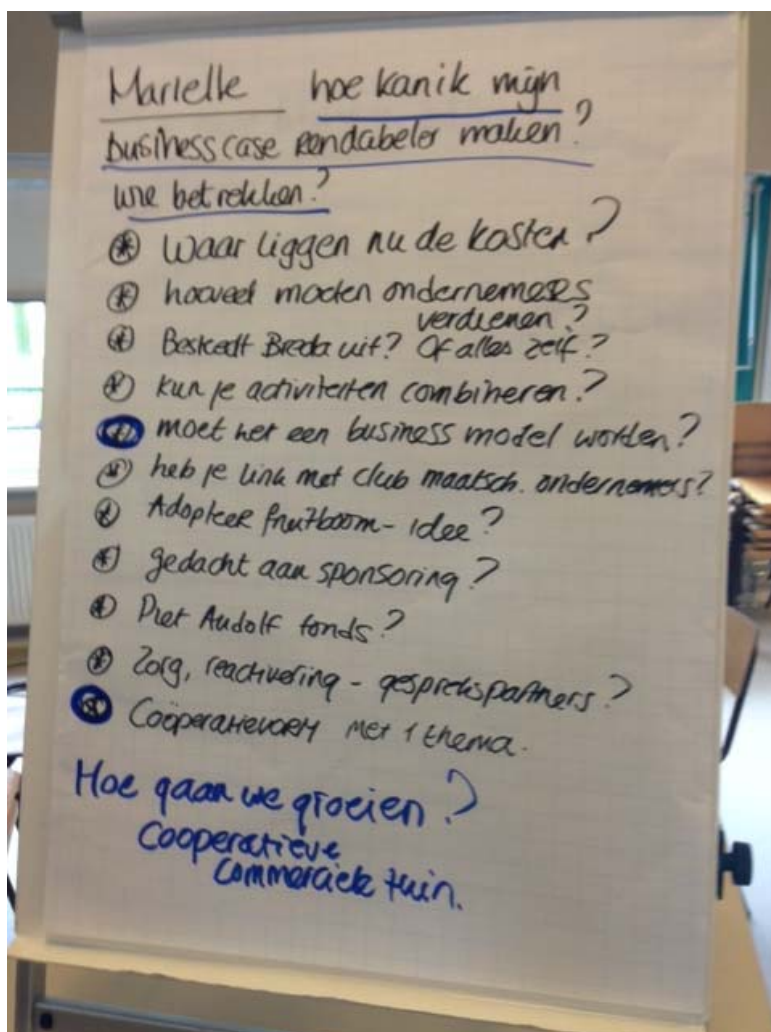 Marielle hoe kan ik mijn
business case rendabeler maken?
wie betrekken?
waar liggen nu de kosten?
hoeveel moeten ondernemers
verdienen?
Besteedt Breda uit? Of alles zelf?
kun je activiteiten combineren?
moet het een business model worden?
heb je link met club maatsch. ondernemers?
Adopteer fruitboom - idee?
gedacht aan sponsoring?
Piet Oudolf fonds?
Zorg, reactivering - gesprekspartners?
Coöperatievorm met 1 thema.
Hoe gaan we groeien?
Coöperatieve
commerciële tuin.